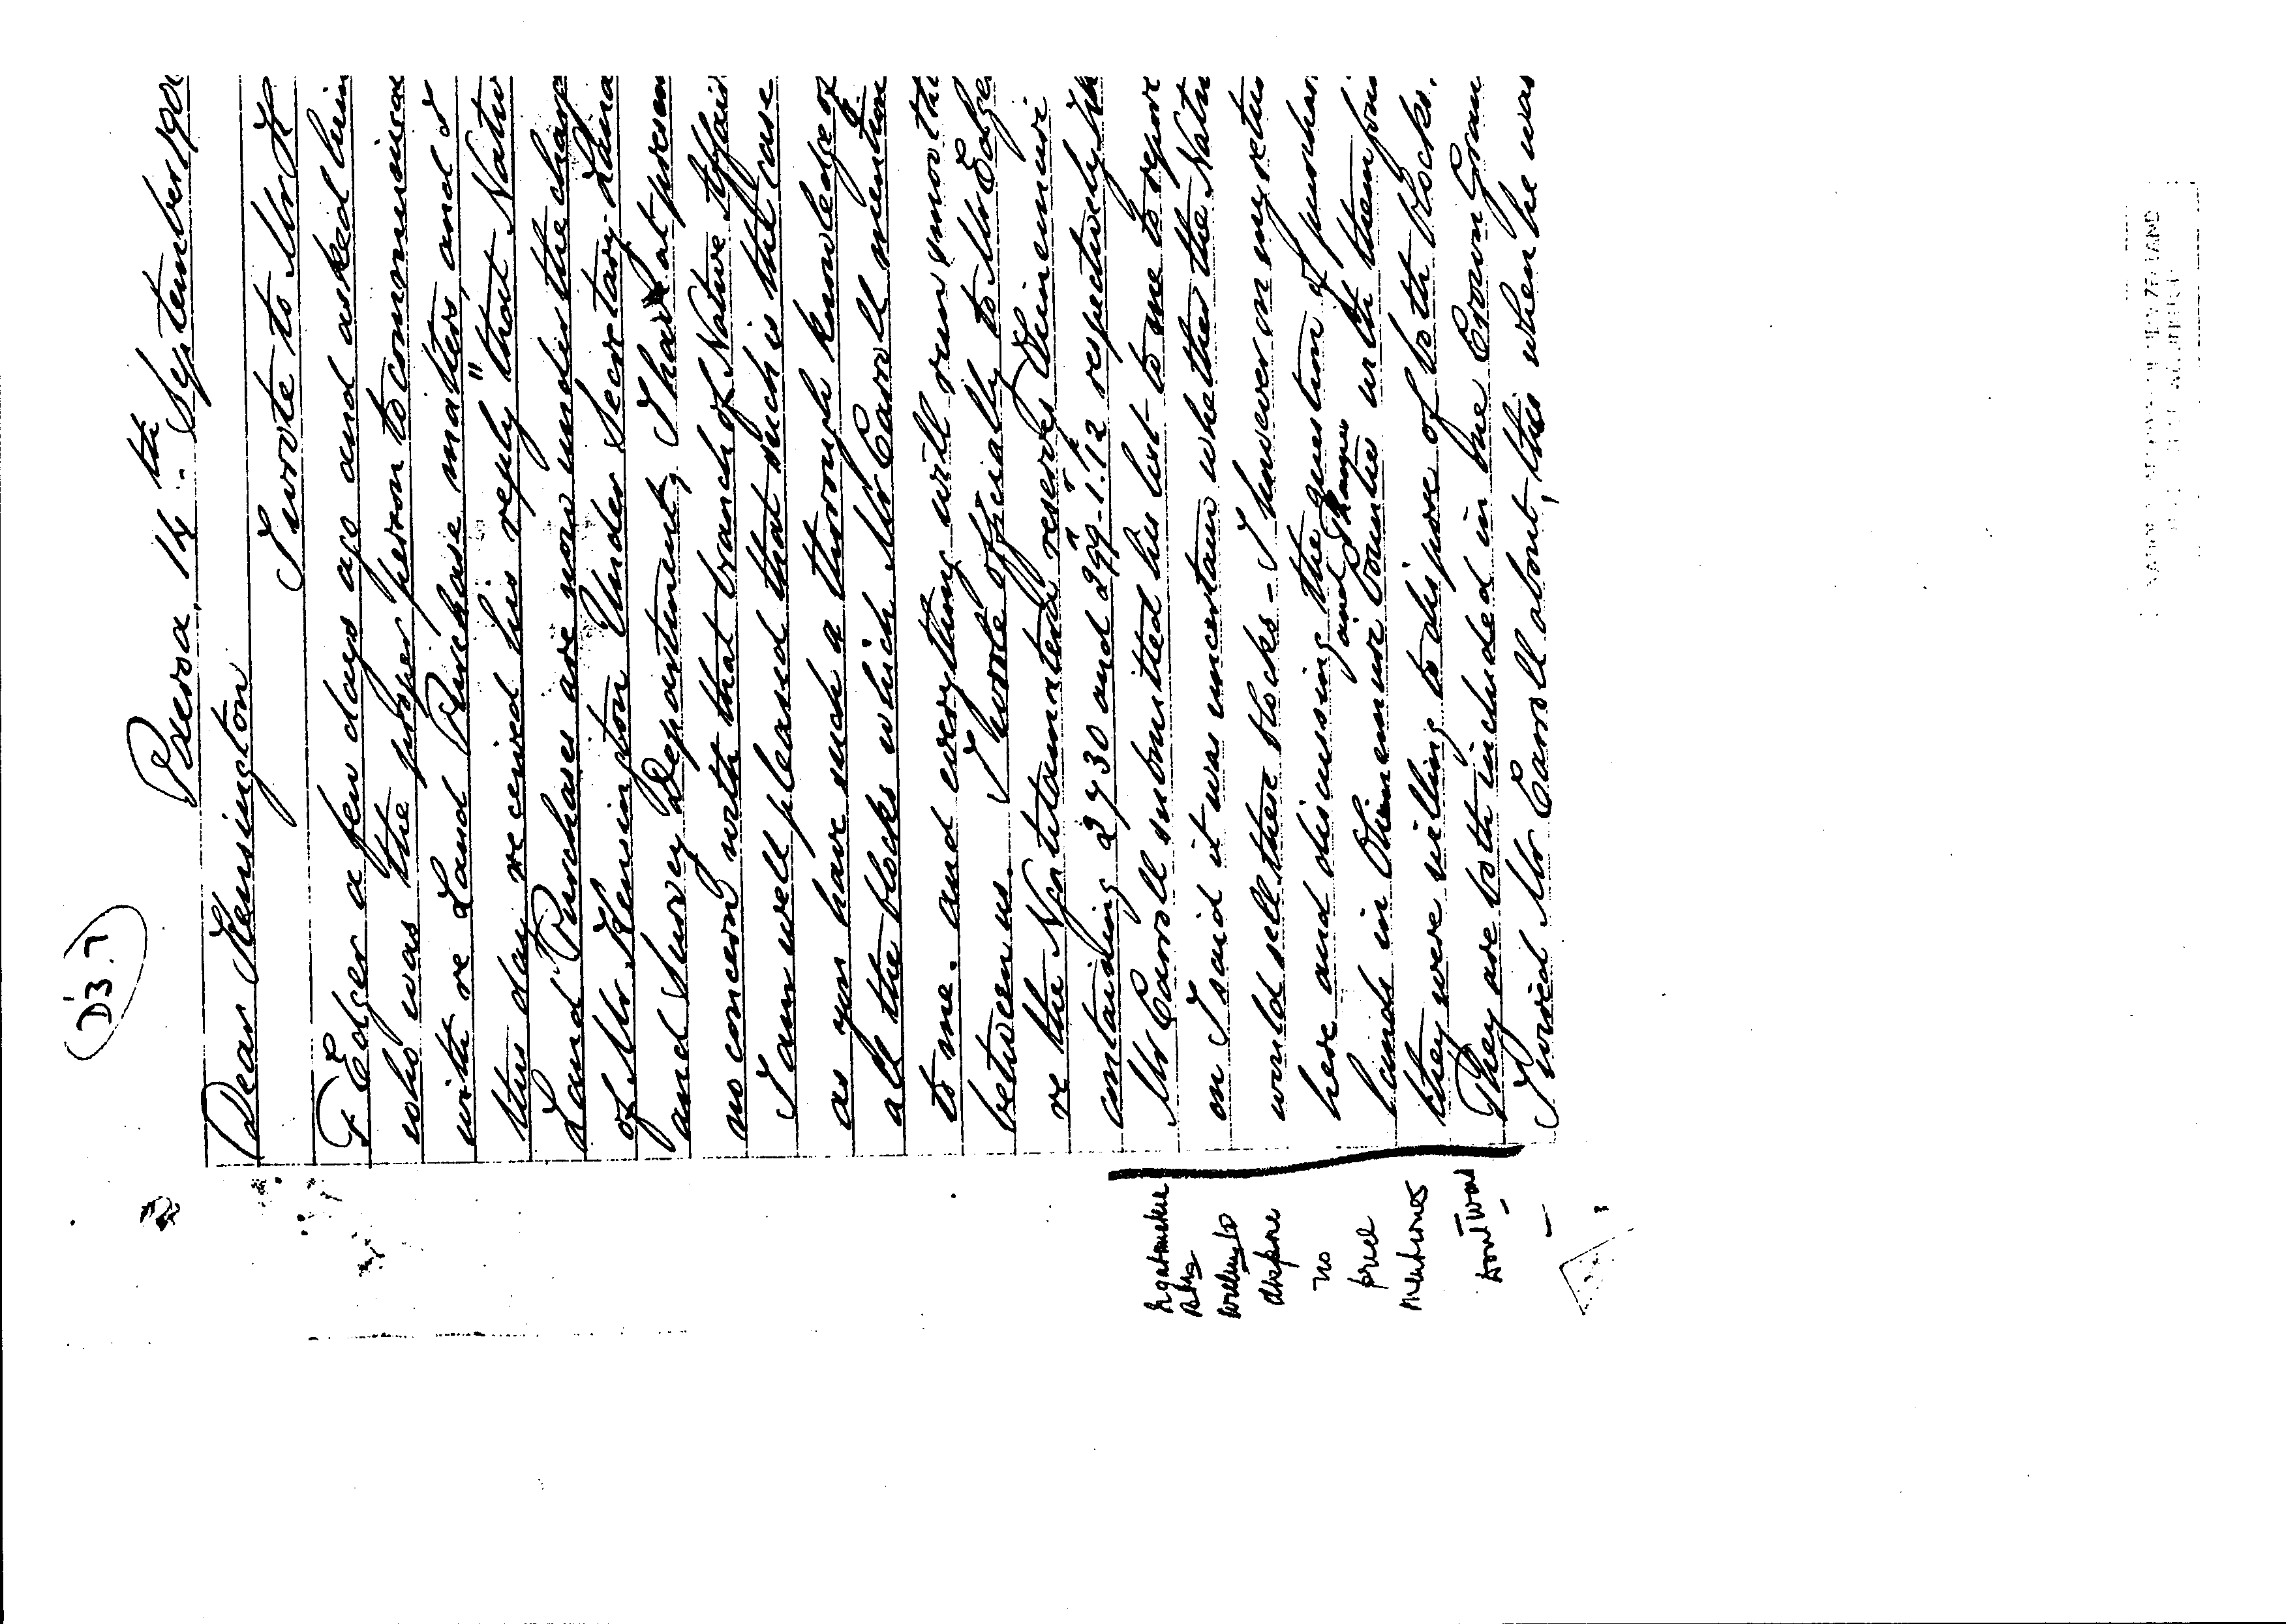 D'3.7
Paeroa, 14th September 190
Dear Kensington
I wrote to Mr H
F Edger a few days ago and asked him
who was the proper person to communicate
with re Land Purchase matters and I
this day received his reply "that Native
Land Purchases are now under the charge
of Mr Kensington Under Secretary Land
and Survey Department, I have at presen
no concern with that branch of Native Affair
I am well pleased that such is the case
as you have such a thorough knowledge of
all the blocks which Mr Carroll mention
to me. and everything will run smooth
between us. I wrote officially to Mr Edge
re the Ngatitamatera reserves Ohinemuri
containing 2730 and 299.1.12 respectively
Mr Carroll submitted his list to me to report
on I said it was uncertain whether the Nativ
would sell these blocks - I however on my retur
here and discussing the question of purchas
and Thames
lands in Ohinemuri Counties with them foun
they were willing to dispose of both blocks.
They are both included in one Crown Gran
I wired Mr Carroll about this when he was
willing to
dispose
no
price
mentioned